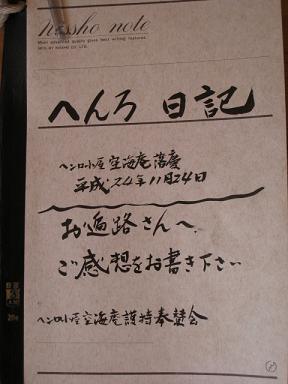 Nossho note
へんろ 日記
ヘンロ小屋空海庵落慶
平成24年11月24日
お遍路さんへ
ご感想をお書き下さい
ヘンロ小屋空海庵護持奉賛会